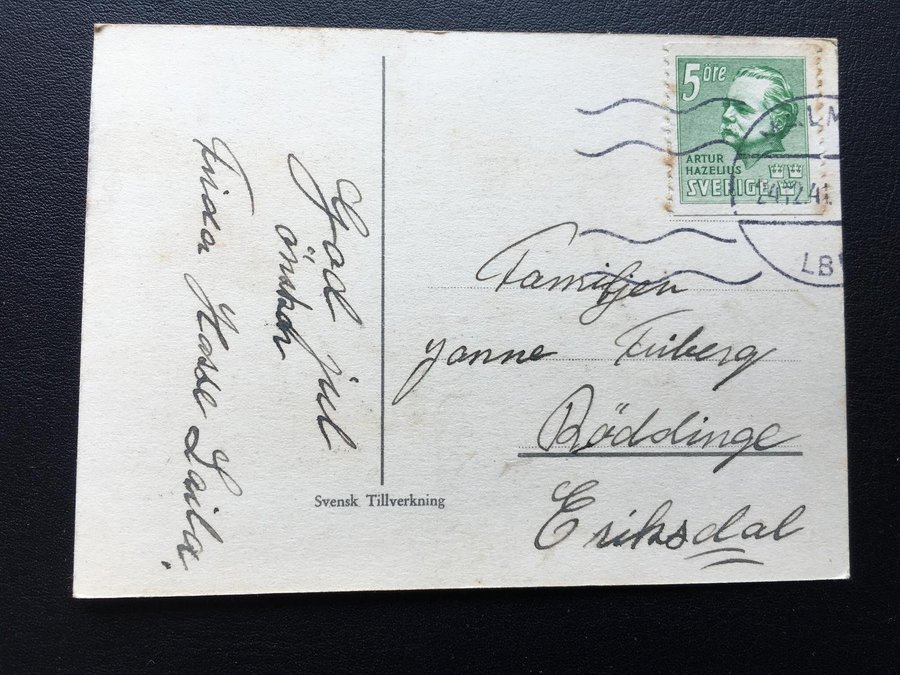 God jul
önskar
Frida Hasse Laila.
Svensk Tillverkning
5 öre
ARTUR
HAZELIUS
SVERIGE
24.12.41.
LBP
Familjen
Janne Friberg
Röddinge
Eriksdal